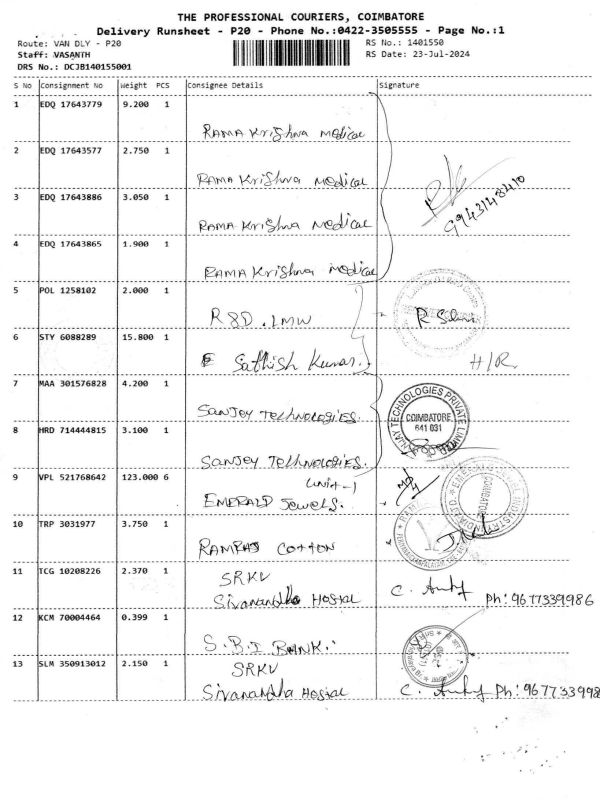 THE PROFESSIONAL COURIERS, COIMBATORE
Delivery Runsheet - P20 - Phone No.:0422-3505555 - Page No.:1
Route: VAN DLY - P20 RS No.: 1401550
Staff: VASANTH RS Date: 23-Jul-2024
DRS No.: DCJB140155001
S No Consignment No Weight PCS Consignee Details Signature
1 EDQ 17643779 9.200 1
RAMA Krishna Medical
2 EDQ 17643577 2.750 1
RAMA Krishna Medical
3 EDQ 17643886 3.050 1
RAMA Krishna Medical
9943148410
4 EDQ 17643865 1.900 1
RAMA Krishna Medical
5 POL 1258102 2.000 1
R&D . LMW
6 STY 6088289 15.800 1
Sathish Kumar. H/R
7 MAA 301576828 4.200 1
SANJOY TECHNOLOGIES.
TECHNOLOGIES PRIVATE
COIMBATORE
641 031
8 HRD 714444815 3.100 1
SANJOY TECHNOLOGIES.
9 VPL 521768642 123.000 6
(unit-1
EMERALD Jewels.
COIMBATORE
10 TRP 3031977 3.750 1
RAMRAJ COTTON
11 TCG 10208226 2.370 1
SRKV
Sivanandha Hostal C. Ph: 9677339986
12 KCM 70004464 0.399 1
S.B.I BANK.
13 SLM 350913012 2.150 1
SRKV
Sivanandha Hostal C. Ph: 967733998